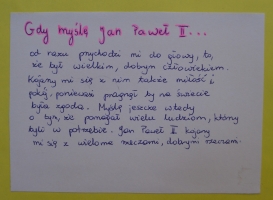 Gdy myślę Jan Paweł II...
od razu przychodzi mi do głowy, to,
że był wielkim, dobrym człowiekiem.
Kojarzy mi się z nim także miłość i
pokój, ponieważ pragnął by na świecie
była zgoda. Myślę jeszcze wtedy
o tym, że pomagał wielu ludziom, którzy
byli w potrzebie. Jan Paweł II kojarzy
mi się z wieloma rzeczami, dobrymi rzeczami.